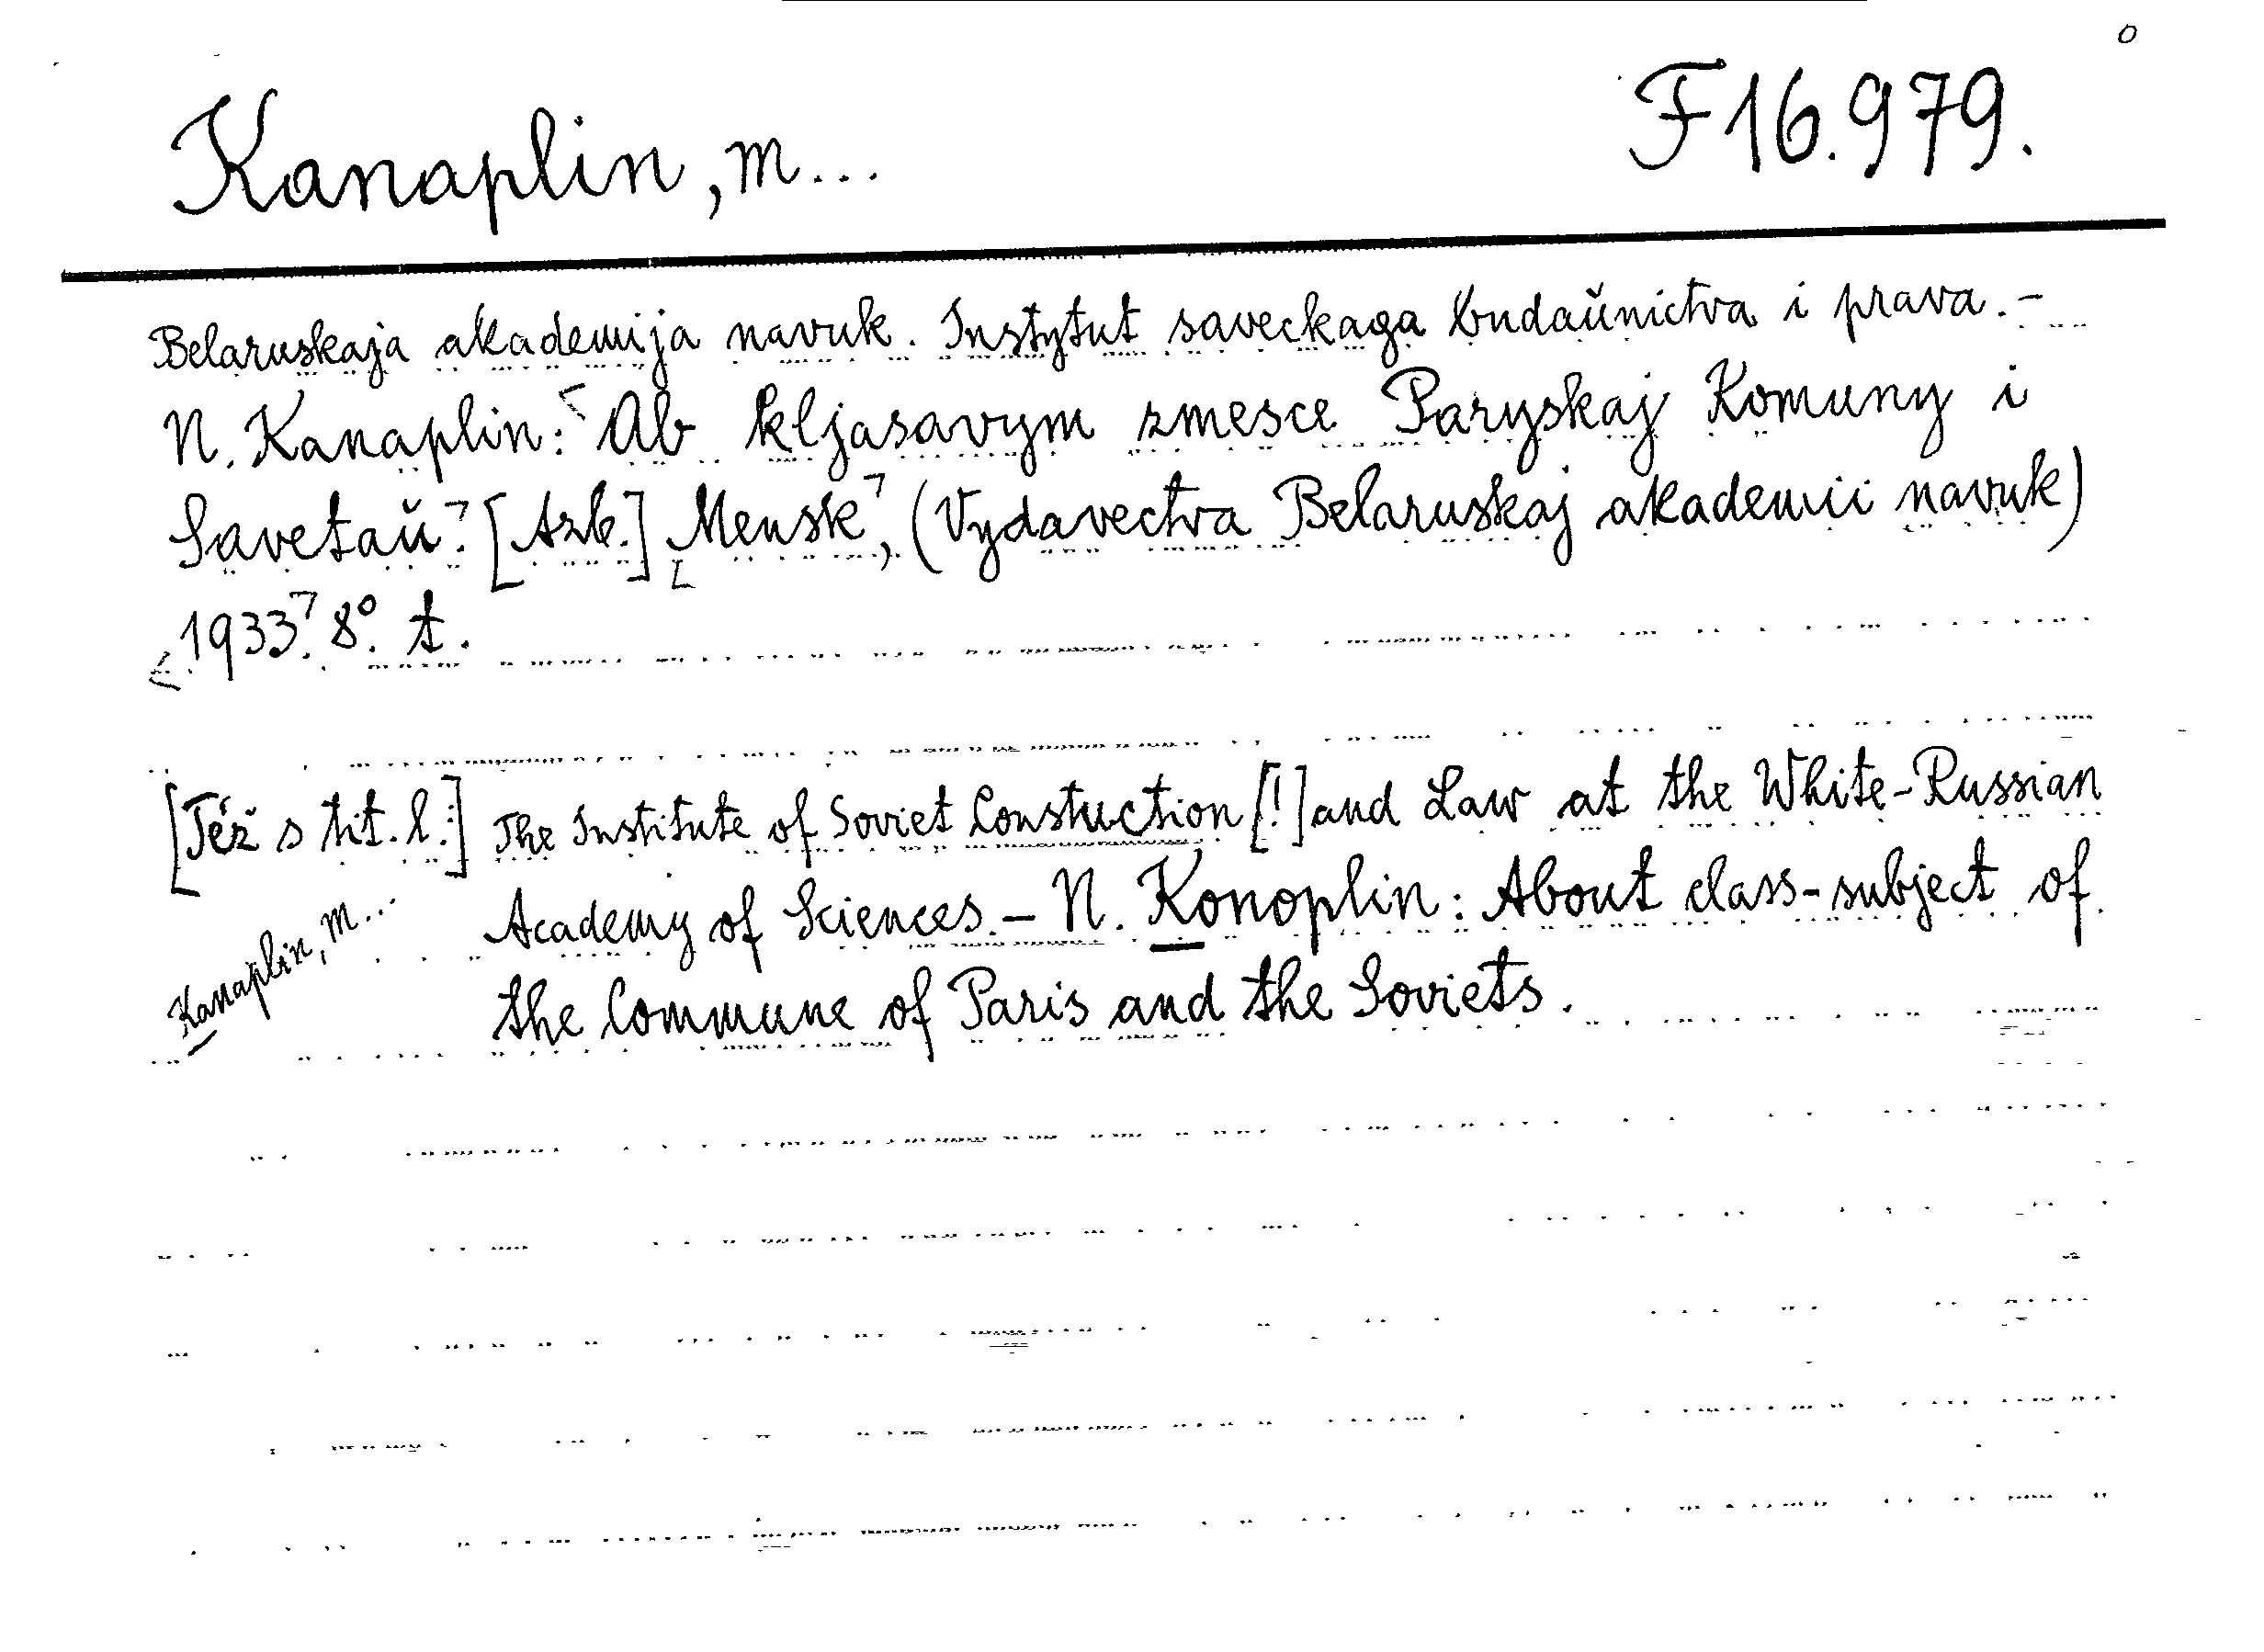 Kanaplin, M... F 16.979.
Belaruskaja akademija navuk. Instytut saveckaga budaŭnictva i prava. –
N. Kanaplin: Ab kljasavym zmesce Paryskaj Komuny i
Savetaŭ. [Azb.] Mensk, (Vydavectva Belaruskaj akademii navuk)
1933. 8°. t.
[Též s tit. l.:] The Institute of Soviet Constuction [!] and Law at the White-Russian
Academy of Sciences. – N. Konoplin: About class-subject of
the Commune of Paris and the Soviets.
Kanaplin, M...